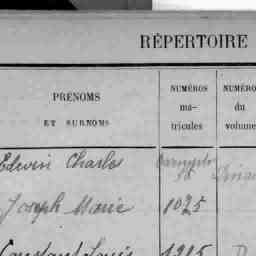 RÉPERTOIRE
PRÉNOMS
ET SURNOMS
NUMÉROS
ma-
tricules
NUMÉROS
du
volume
Edwin Charles
Joseph Marie 1025
Constant Louis 1215